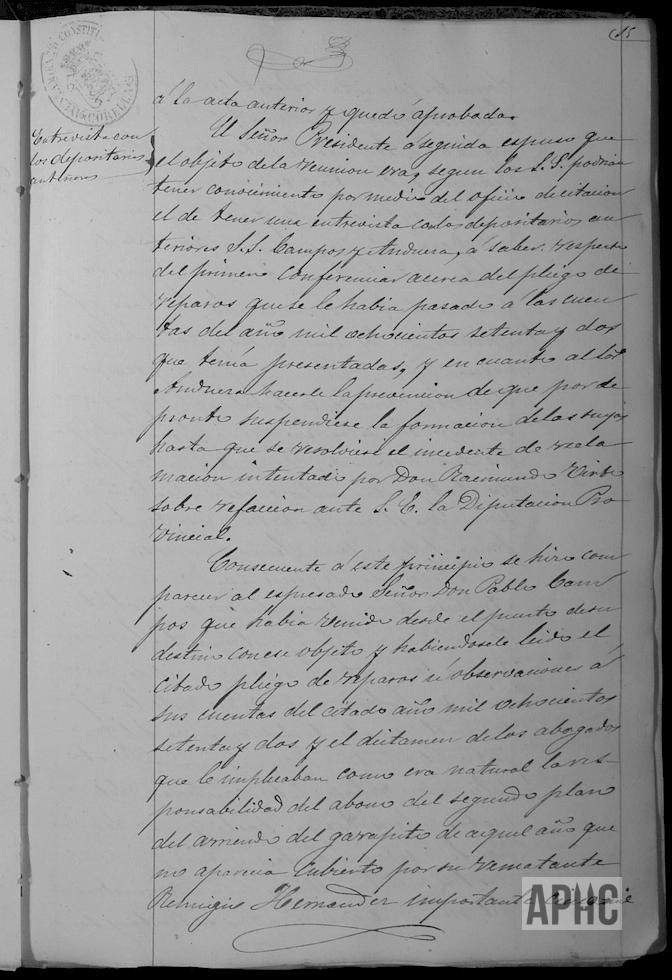 15
Entrevista con
los depositarios
anteriores
á la acta anterior y quedó aprobada.
El Señor Presidente á seguida espuso que
el objeto de la reunion era, segun los S.S. podrian
tener conocimiento por medio del oficio de citacion
el de tener una entrevista con los depositarios an
teriores S.S. Campos y Anduera, á saber: respecto
del primero conferenciar acerca del pliego de
reparos que se le habia pasado á las cuen
tas del año mil ochocientos setenta y dos
que tenia presentadas, y en cuanto al Sor
Anduera hacerle la prevencion de que por de
pronto suspendiese la formacion de las suyas
hasta que se resolviese el incidente de recla
macion intentado por Don Raimundo Virto
sobre refaccion ante S. E. la Diputacion Pro
vincial.
Consecuente á este principio se hizo com
parecer al espresado Señor Don Pablo Cam
pos que habia venido desde el punto de su
destino con ese objeto y habiendosele leido el
citado pliego de reparos ú observaciones á
sus cuentas del citado año mil ochocientos
setenta y dos y el dictamen de los abogados
que le implicaban como era natural la res-
ponsabilidad del abono del segundo plazo
del arriendo del garapito de aquel año que
no aparecia cubierto por su rematante
Remigio Hernandez importante
APHC